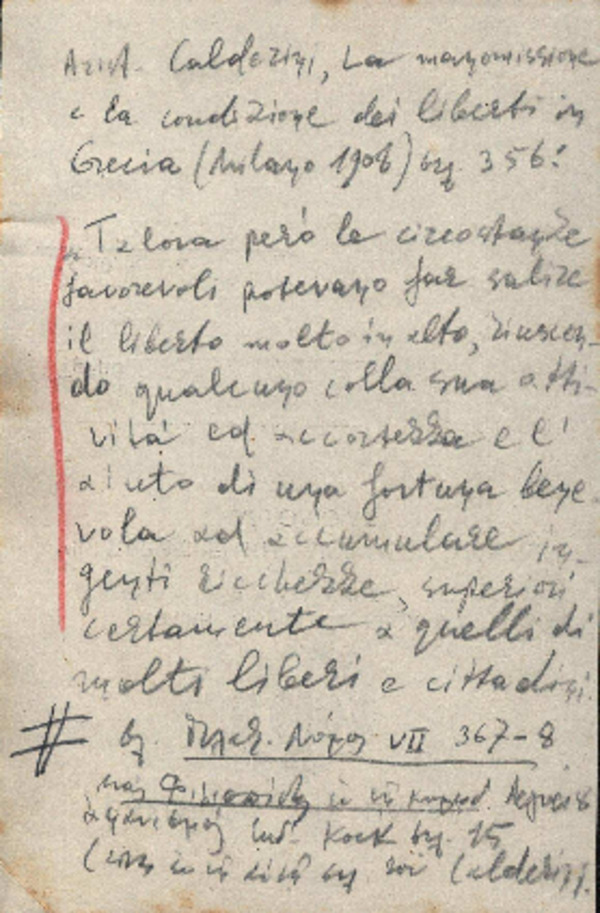 Arist. Calderini, La manomissione
e la condizione dei liberti in
Grecia (Milano 1908) σελ. 356:
"Talora però le circostanze
favorevoli potevano far salire
il liberto molto in alto, riuscen-
do qualcuno colla sua atti-
vità ed accortezza e l'
aiuto di una fortuna bene-
vola ad accumulare in-
genti ricchezze, superiori
certamente a quelli di
molti liberi e cittadini.
Πλατ. Νόμοι VII 367-8
Kock 15
Calderini.